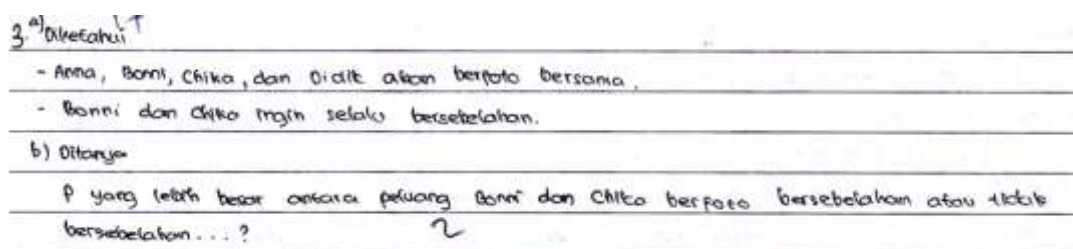 3. a) Diketahui
- Anna, Bonni, Chika, dan Didit akan berfoto bersama.
- Bonni dan Chika ingin selalu bersebelahan.
b) Ditanya
P yang lebih besar antara peluang Bonni dan Chika berfoto bersebelahan atau tidak
bersebelahan . . . ?
2